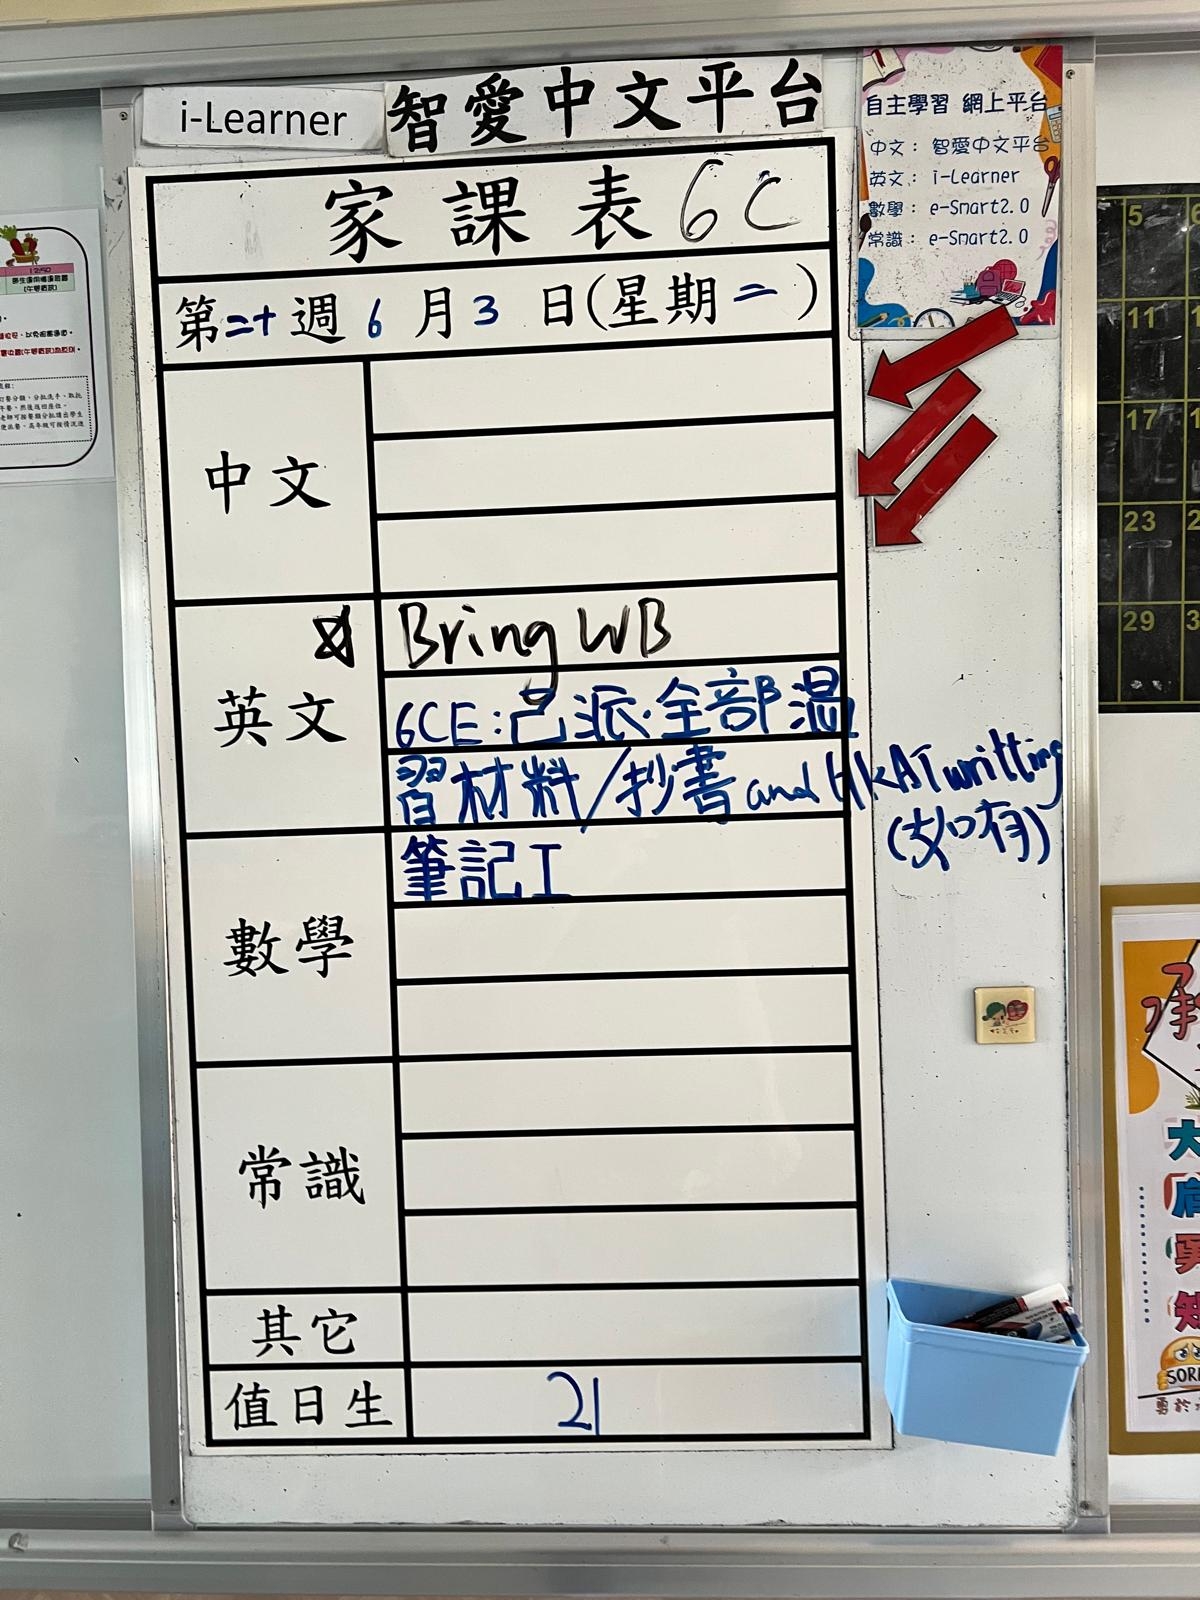 i-Learner
智愛中文平台
家課表 6C
第二十週 6月3日(星期二)
中文
英文
Bring WB
6CE:己派·全部溫
習材料/抄書 and HKAT writting
(如有)
數學
筆記工
常識
其它
值日生
21
自主學習 網上平台
中文: 智愛中文平台
英文: i-Learner
數學: e-Smart2.0
常識: e-Smart2.0
12:50
5
11
17
23
29
大
勇
SOR
勇於